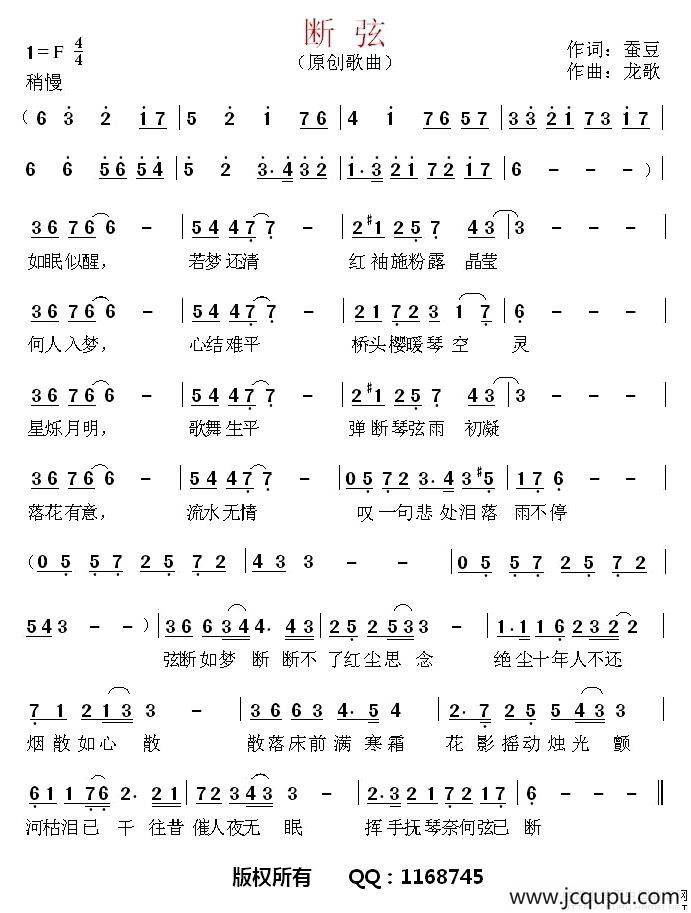 断 弦
(原创歌曲)
1=F 4/4
稍慢
作词：蚕豆
作曲：龙歌
(6 3 2 1 7 | 5 2 1 7 6 | 4 1 7 6 5 7 | 3 3 2 1 7 3 1 7 |
6 6 5 6 5 4 | 5 2 3·4 3 2 | 1·3 2 1 7 2 1 7 | 6 - - ) |
3 6 7 6 6 - | 5 4 4 7 7 - | 2 #1 2 5 2 4 3 | 3 - - - |
如眠似醒， 若梦还清 红袖施粉露 晶莹
3 6 7 6 6 - | 5 4 4 7 7 - | 2 1 7 2 3 1 7 | 6 - - - |
何人入梦， 心结难平 桥头樱暖琴空 灵
3 6 7 6 6 - | 5 4 4 7 7 - | 2 #1 2 5 2 4 3 | 3 - - - |
星烁月明， 歌舞生平 弹断琴弦雨 初凝
3 6 7 6 6 - | 5 4 4 7 7 - | 0 5 7 2 3·4 3 #5 | 1 7 6 - - |
落花有意， 流水无情 叹一句悲处泪落 雨不停
(0 5 5 7 2 5 7 2 | 4 3 3 - - | 0 5 5 7 2 5 7 2 |
5 4 3 - - ) | 3 6 6 3 4 4· 4 3 | 2 5 2 5 3 3 - | 1·1 1 6 2 3 2 2 |
弦断如梦 断 断不 了红尘思 念 绝尘十年人不还
7 1 2 1 3 3 - | 3 6 6 3 4·5 4 | 2·7 2 5 4 3 3 | 3 - - - |
烟散如心 散 散落床前满 寒霜 花 影摇动烛光 颤
6 1 1 7 6 2· 2 1 | 7 2 3 4 3 3 - | 2·3 2 1 7 2 1 7 | 6 - - - ‖
河枯泪已 干 往昔 催人夜无 眠 挥手抚琴奈何弦已 断
版权所有 QQ：1168745
www.jcqupu.com